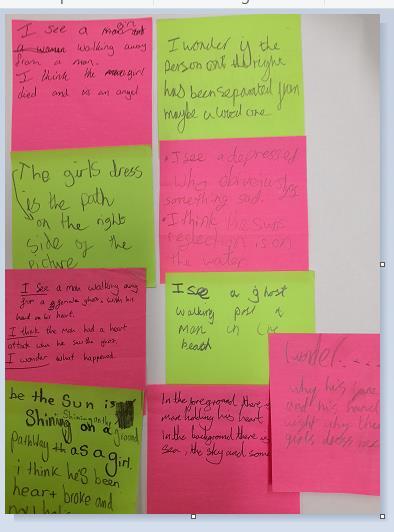 I see a girl
a woman walking away
from a man.
I think the girl
died and is an angel
I wonder if the
person on the right
has been separated from
maybe a loved one
The girls dress
is the path
on the right
side of the
picture
I see a depressed
why obviously
something sad.
I think the suns
reflection is on
the water
I see a man walking away
from a female ghost with his
hand on his heart.
I think the man had a heart
attack when he saw the ghost.
I wonder what happened.
I see a ghost
walking past a
man in the
be the Sun is
Shining on a
pathway as a girl.
i think he's been
heart broke and
In the foreground there is
man holding his heart
in the background there is
sea, the sky and some
I wonder....
why his
and his hand
why the
girls dress